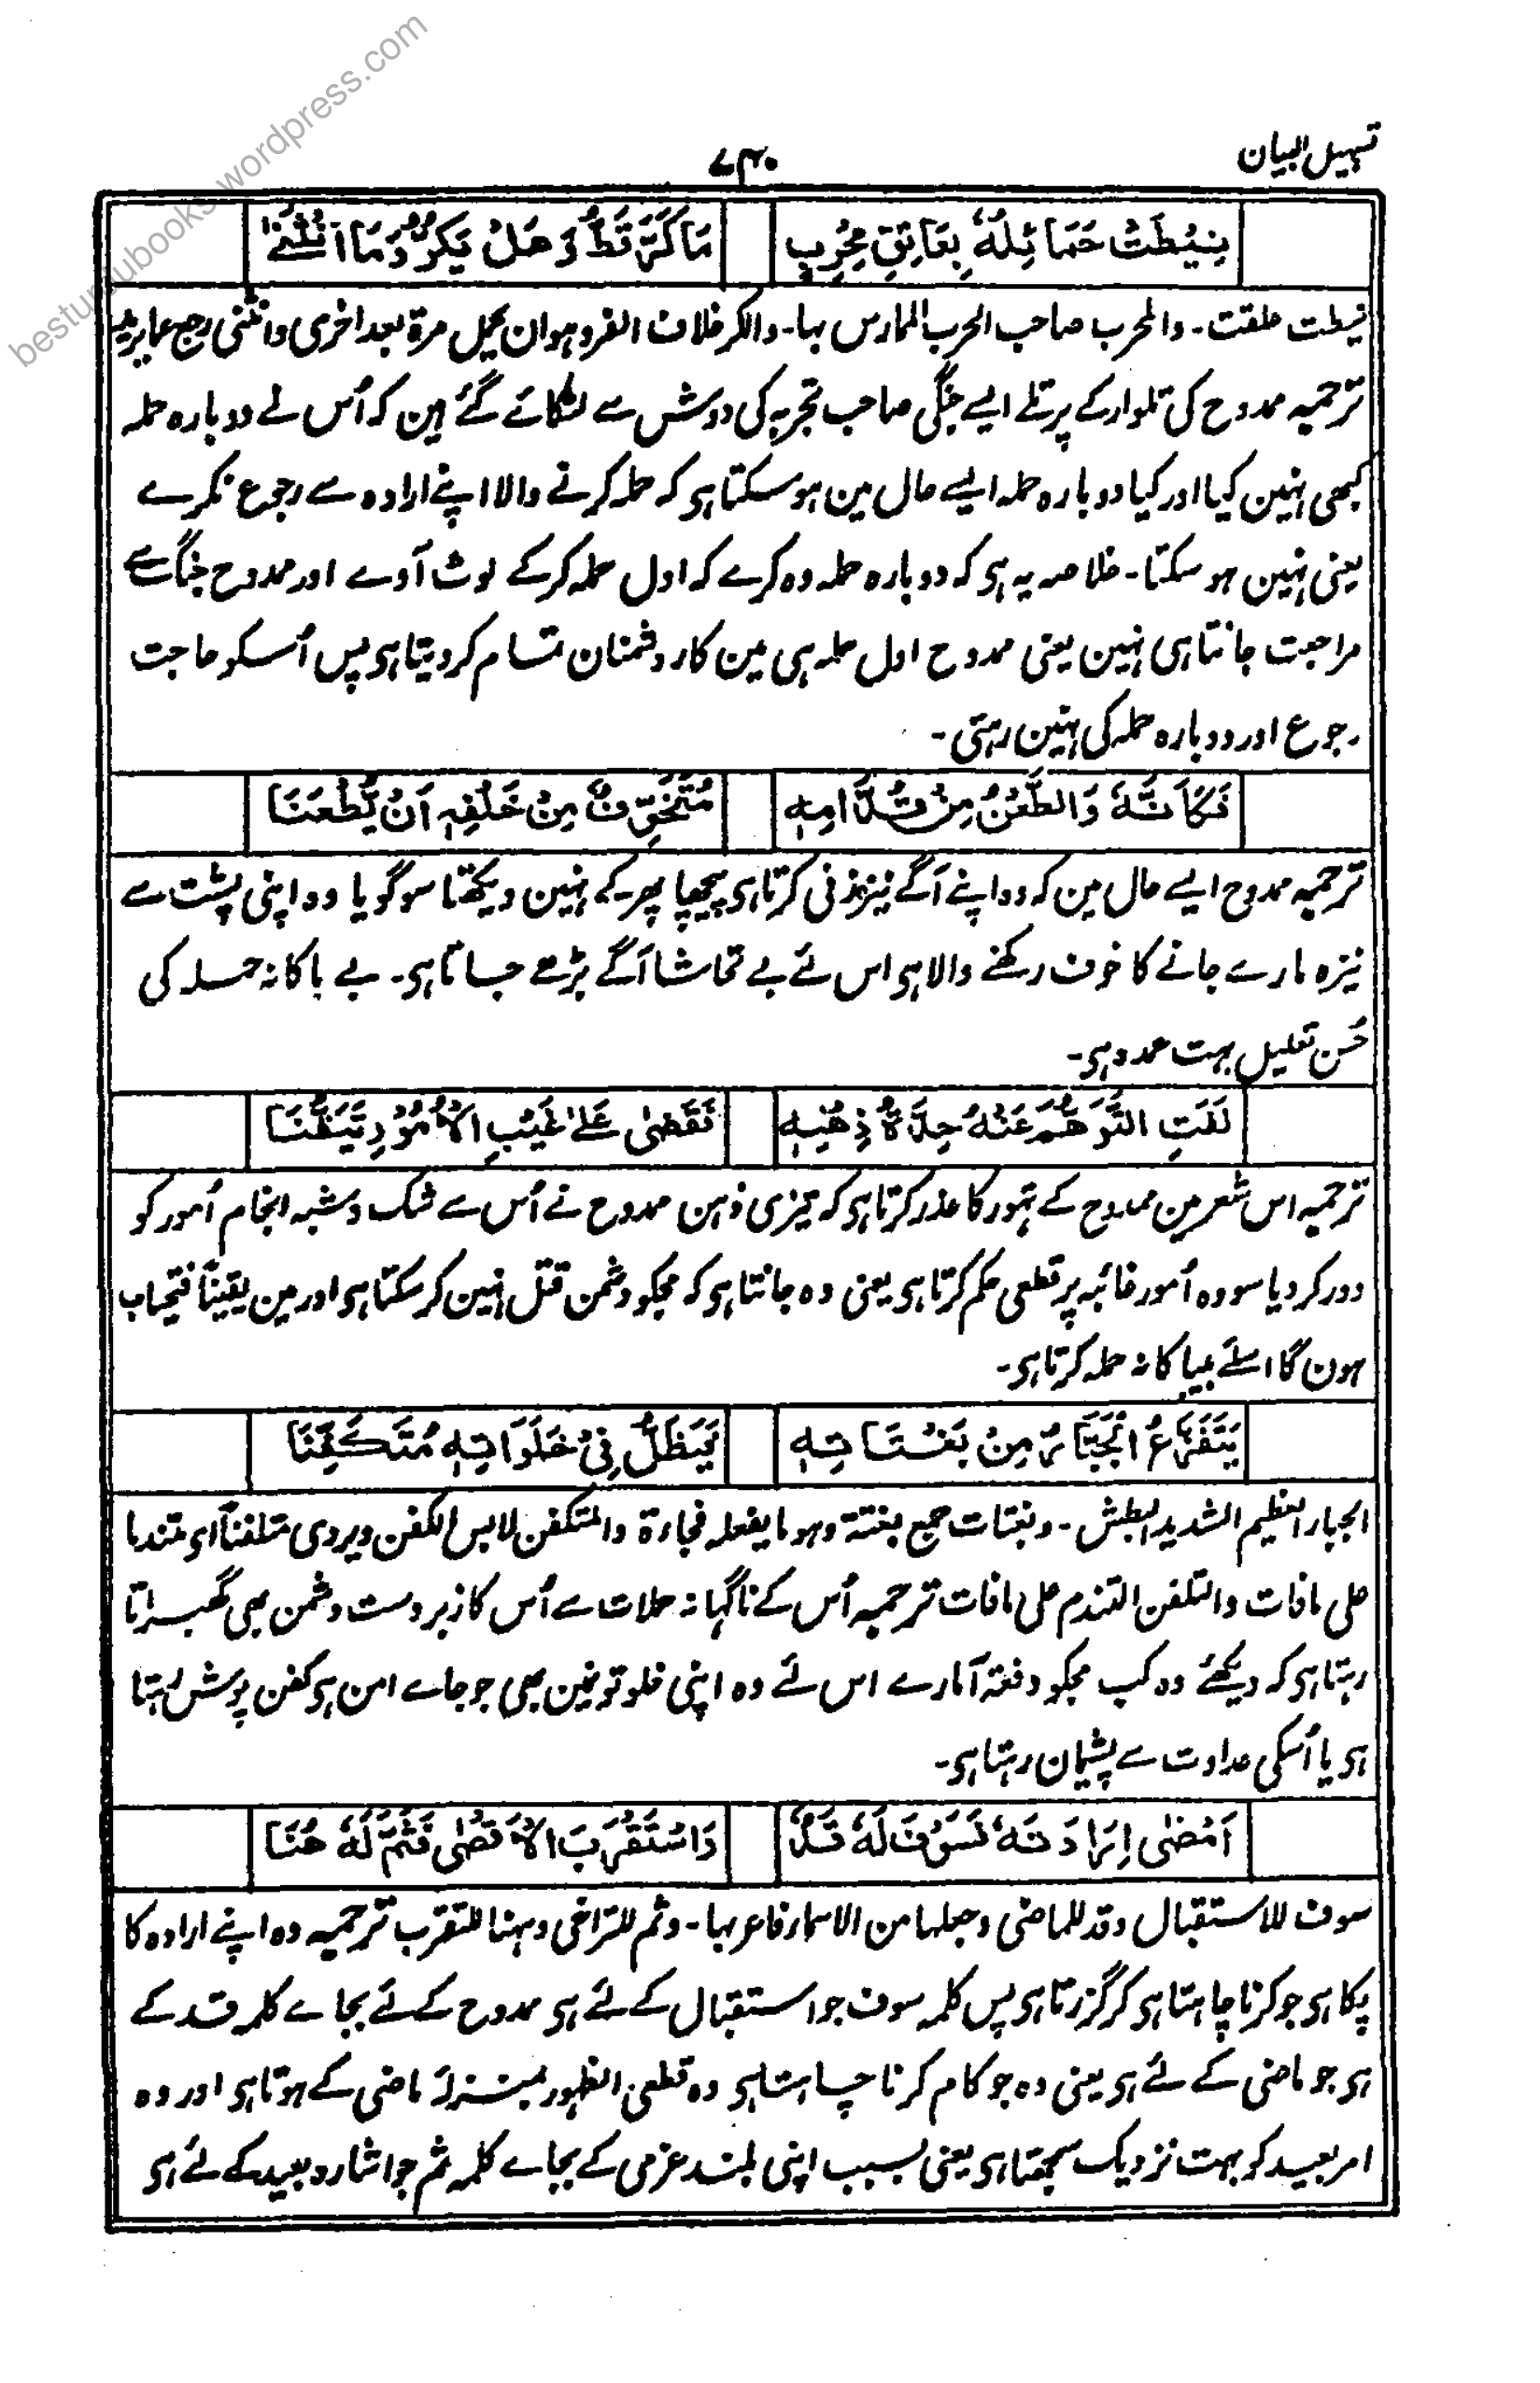 besturdubooks.wordpress.com
تسہیل البیان
۷۴۰
نِیْطَتْ حَمَائِلُهٗ بِعَاتِقِ مِحْرَبٍ مَا كَرَّ قَطُّ وَهَلْ یَكُرُّ وَمَا انْثَنٰى
نیطت علقت۔ والمحرب صاحب الحرب الممارس بہا۔ والکر خلاف الفر وہو ان یحمل مرة بعد اخری وانثنی رجع عما یرید
ترجمہ ممدوح کی تلوار کے پرتلے ایسے جنگی صاحب تجربہ کی دوش سے لٹکائے گئے ہین کہ اُس نے دوبارہ حملہ
کبھی نہین کیا اور کیا دوبارہ حملہ ایسے حال مین ہو سکتا ہی کہ حملہ کرنے والا اپنے ارادہ سے رجوع نکرے
یعنی نہین ہو سکتا۔ خلاصہ یہ ہی کہ دوبارہ حملہ وہ کرے کہ اول حملہ کرکے لوٹ آوے اور ممدوح جنگ سے
مراجعت جانتا ہی نہین یعنی ممدوح اول حملہ ہی مین کار دشمنان تمام کر دیتا ہی پس اُسکو حاجت
رجوع اور دوبارہ حملہ کی نہین رہتی۔
فَكَاَنَّهٗ وَالطَّعْنُ مِنْ قُدَّامِهٖ مُتَخَوِّفٌ مِنْ خَلْفِهٖ اَنْ یُّطْعَنَا
ترجمہ ممدوح ایسے حال مین کہ وہ اپنے آگے نیزہ زنی کرتا ہی پیچھا پھر کے نہین دیکھتا سو گویا وہ اپنی پشت سے
نیزہ مارے جانے کا خوف رکھنے والا ہی اس لئے بے تحاشا آگے بڑھے جاتا ہی۔ بے باکانہ حملہ کی
حُسن تعلیل بہت عمدہ ہی۔
نَفَتِ التَّوَهُّمَ عَنْهُ حِدَّةُ ذِهْنِهٖ فَقَضٰى عَلٰى غَیْبِ الْاُمُوْرِ تَیَقُّنَا
ترجمہ اس شعر مین ممدوح کے تہور کا عذر کرتا ہی کہ تیزی ذہن ممدوح نے اُس سے شک و شبہ انجام اُمور کو
دور کر دیا سو وہ اُمور غائبہ پر قطعی حکم کرتا ہی یعنی وہ جانتا ہی کہ مجکو دشمن قتل نہین کر سکتا ہی اور مین یقیناً فتحیاب
ہون گا اسلئے بیباکانہ حملہ کرتا ہی۔
یَتَفَزَّعُ الْجَبَّارُ مِنْ بَغَتَاتِهٖ فَیَظَلُّ فِیْ خَلَوَاتِهٖ مُتَكَفِّنَا
الجبار العظیم الشدید البطش۔ وبغتات جمع بغتة وہو ما یفعلہ فجاءة والمتکفن لابس الکفن ویروی متلفناً ای متندما
علی مافات والتلفن التندم علی مافات ترجمہ اُس کے ناگہانہ حملات سے اُس کا زبردست دشمن بھی گھبراتا
رہتا ہی کہ دیکھئے وہ کب مجکو دفعۃً آمارے اس لئے وہ اپنی خلوتونمین بھی جو جاے امن ہی کفن پوش رہتا
ہی یا اُسکی عداوت سے پشیمان رہتا ہی۔
اَمْضٰى اِرَادَتَهٗ فَسَوْفَ لَهٗ قَدٌ وَاسْتَقْرَبَ الْاَقْصٰى فَثَمَّ لَهٗ هُنَا
سوف للاستقبال وقد للماضی وجعلہا من الاسماء فاعربہا۔ وثم للتراخی وہنا للتقرب ترجمہ وہ اپنے ارادہ کا
پکا ہی جو کرنا چاہتا ہی کر گزرتا ہی پس کلمہ سوف جو استقبال کے لئے ہی ممدوح کے لئے بجاے کلمہ قد کے
ہی جو ماضی کے لئے ہی یعنی وہ جو کام کرنا چاہتا ہی وہ قطعی الظہور بمنزلۂ ماضی کے ہوتا ہی اور وہ
امر بعید کو بہت نزدیک سمجھتا ہی یعنی بسبب اپنی بلند عزمی کے بجاے کلمہ ثم جو اشارہ بعید کے لئے ہی